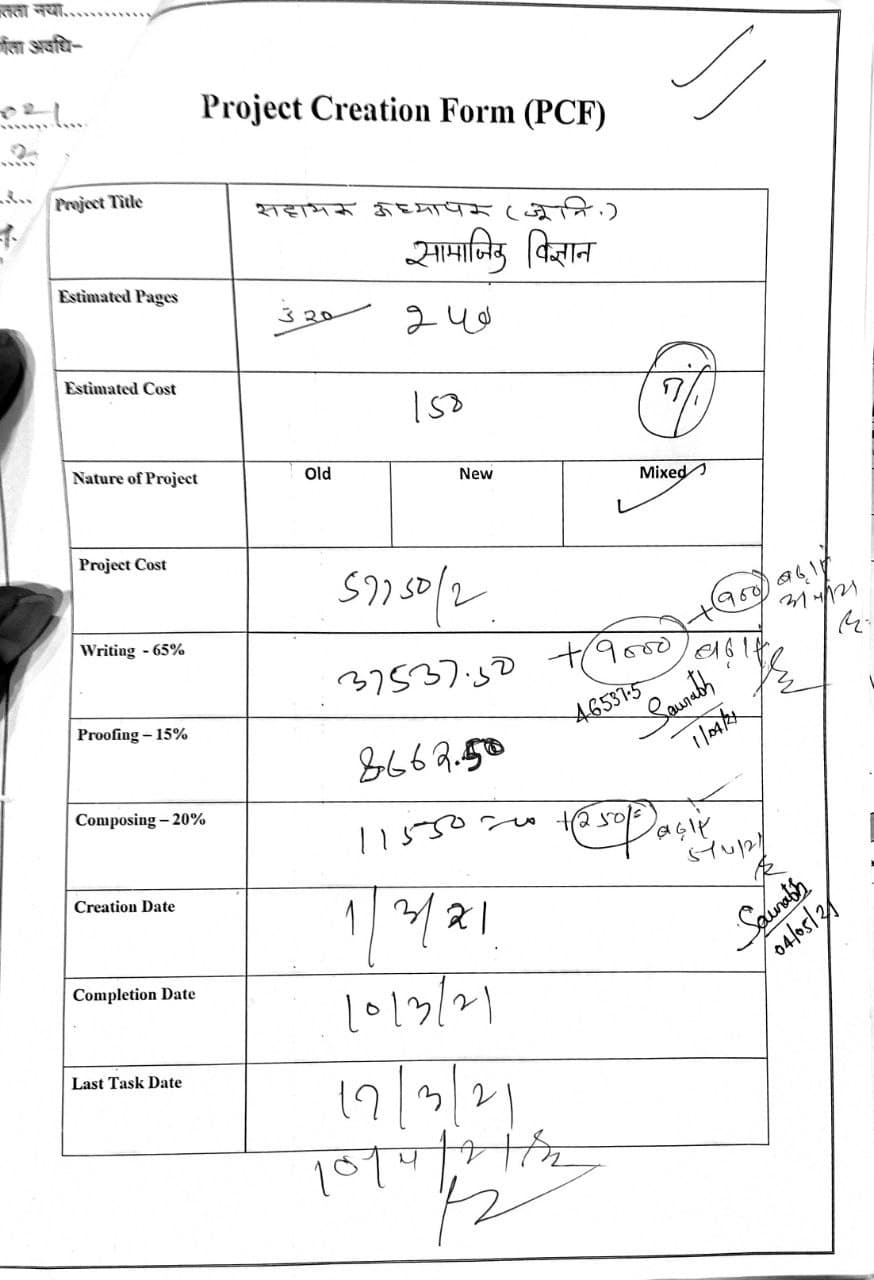 तता नया..............
र्णता अवधि-
Project Creation Form (PCF)
Project Title
सहायक अध्यापक (जूनि.)
सामाजिक विज्ञान
Estimated Pages
320 240
Estimated Cost
150
Nature of Project
Old New Mixed
Project Cost
57750/2
+ 900 बढ़ाएं
Writing - 65%
37537.50 + 9000 बढ़ाएं
46537.5 Saurabh
1/04/21
Proofing – 15%
8662.50
Composing – 20%
11550 = 00 + 250/= बढ़ाएं
5/4/21
Creation Date
1/3/21
Saurabh
04/05/21
Completion Date
10/3/21
Last Task Date
17/3/21
10/4/21